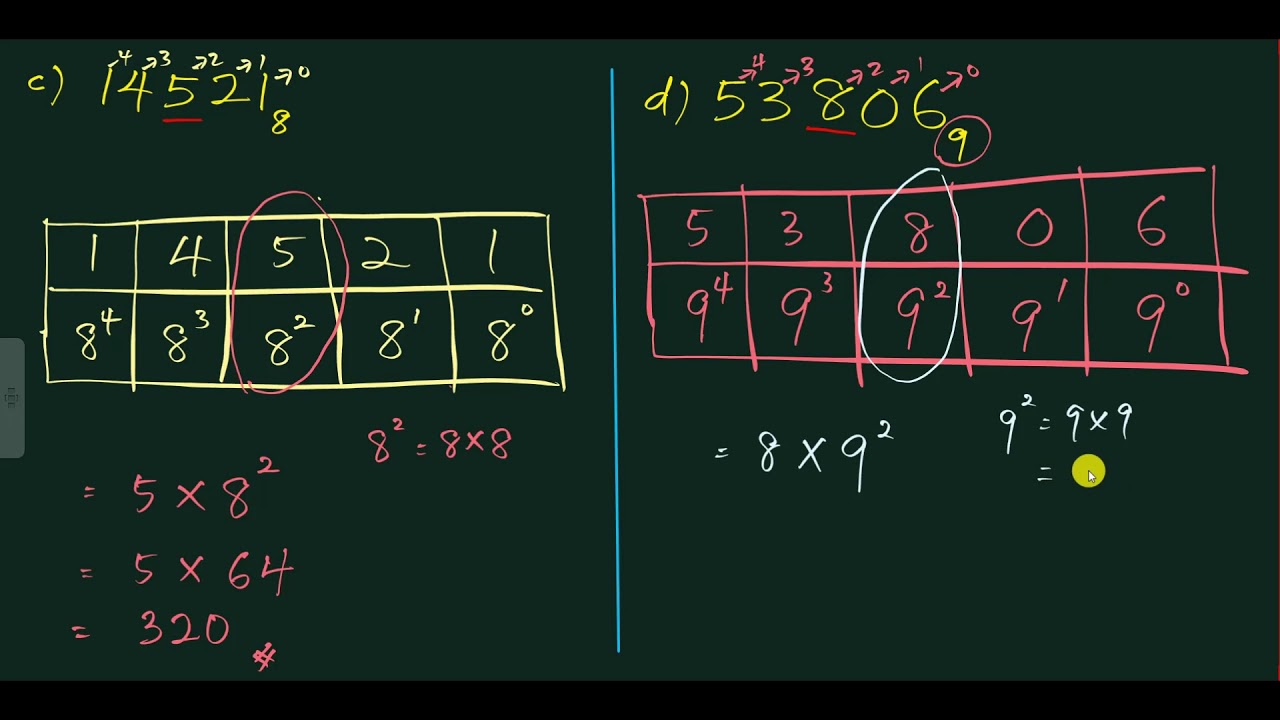 c) 14521₈
4 3 2 1 0
1 4 5 2 1
8⁴ 8³ 8² 8¹ 8⁰
8² = 8 × 8
= 5 × 8²
= 5 × 64
= 320
d) 53806₉
4 3 2 1 0
5 3 8 0 6
9⁴ 9³ 9² 9¹ 9⁰
= 8 × 9²
9² = 9 × 9
=